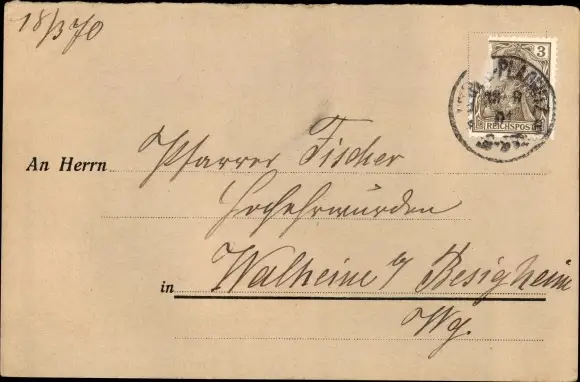 18/3 70
3
PLAGWITZ
REICHSPOST
An Herrn Pfarrer Fischer
Hochehrwürden
in Walheim b/ Besigheim
Wg.